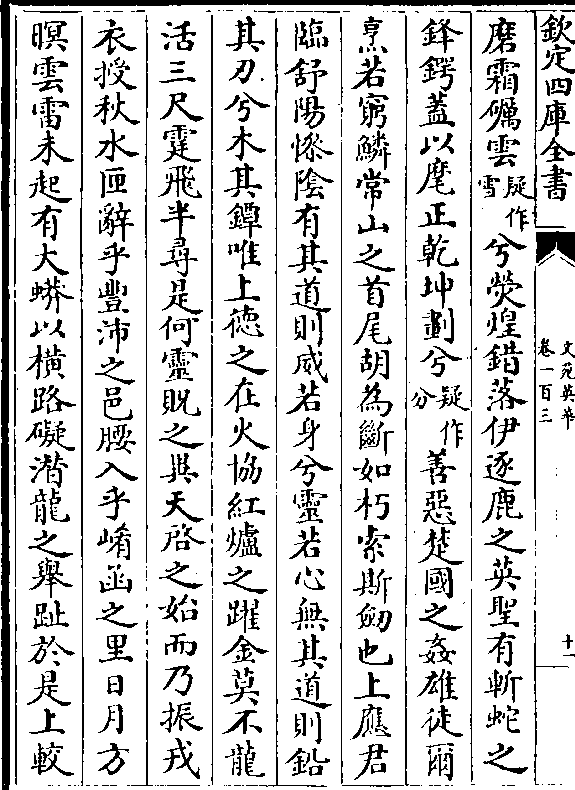 欽定四庫全書
文苑英華
卷一百三
十一
磨霜礪雲疑作雪兮熒煌錯落伊逐鹿之英聖有斬蛇之
鋒鍔蓋以麾正乾坤劃兮疑作分善惡楚國之姦雄徒爾
烹若窮鱗常山之首尾胡為斷如朽索斯劒也上應君
臨舒陽慘陰有其道則威若身兮靈若心無其道則鉛
其刃兮木其鐔唯上徳之在火協紅爐之躍金莫不龍
活三尺霆飛半尋是何靈貺之與天啓之始而乃振戎
衣授秋水匣辭乎豐沛之邑腰入乎崤函之里日月方
暝雲雷未起有大蟒以横路礙潛龍之舉趾於是上較